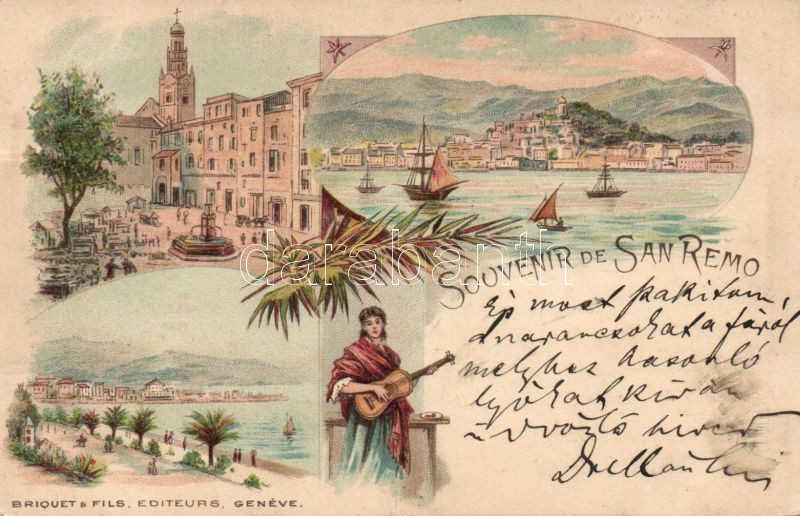 SOUVENIR DE SAN REMO
Ép most
a narancsokat a fáról
melyhez hasonló
jókat kíván
üdvözlő híved
BRIQUET & FILS, EDITEURS, GENÈVE.
darabanth